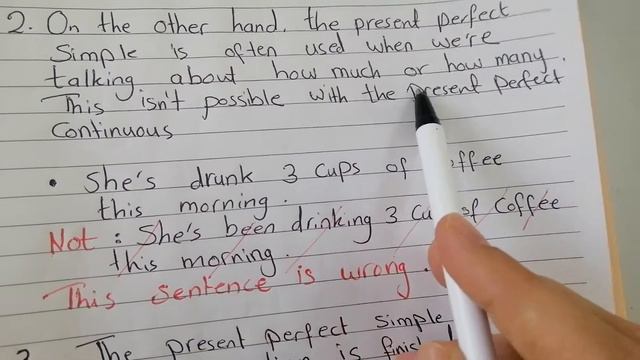 2. On the other hand, the present perfect
Simple is often used when we're
talking about how much or how many.
This isn't possible with the present perfect
Continuous
• She's drunk 3 cups of
this morning.
Not : She's been drinking 3 of Coffee
this morning.
This sentence is wrong.
The present perfect simple
is